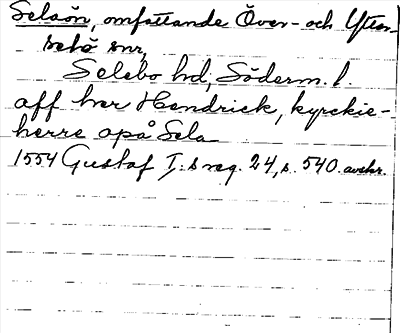 Selaön, omfattande Över- och Ytter-
selö snr,
Selebo hd, Söderm. l.
aff her Hendrick, kyrckie-
herre opå Sela
1554 Gustaf I:s reg. 24, s. 540. avskr.